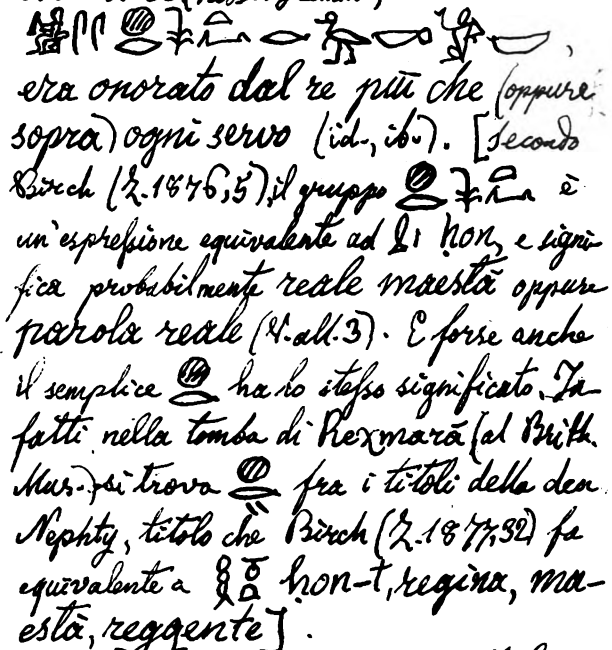 era onorato dal re più che (oppure
sopra) ogni servo (id., ib.). [Secondo
Birch (Z. 1876,5), il gruppo è
un'espressione equivalente ad hon, e signi-
fica probabilmente reale maestà oppure
parola reale (V. all. 3). E forse anche
il semplice ha lo stesso significato. In-
fatti nella tomba di Rexmarā (al Brith.
Mus.) si trova fra i titoli della dea
Nephty, titolo che Birch (Z. 1877,32) fa
equivalente a hon-t, regina, ma-
està, reggente].